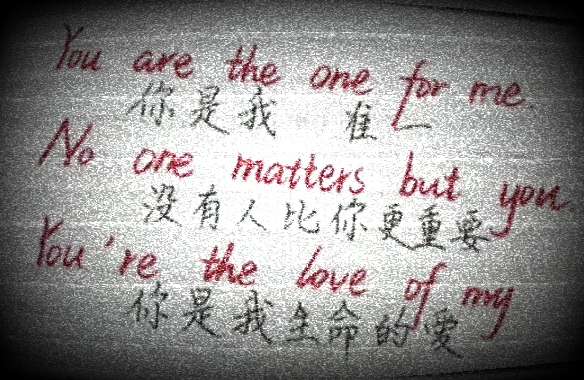 You are the one for me.
你是我 准一
No one matters but you
没有人比你更重要
You're the love of my
你是我生命的爱